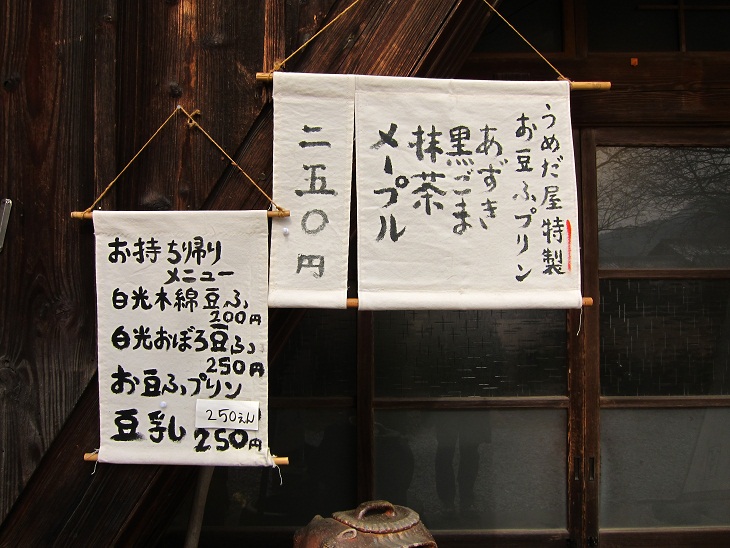 うめだ屋特製
お豆ふプリン
あずき
黒ごま
抹茶
メープル
二五〇円
お持ち帰り
メニュー
白光木綿豆ふ
200円
白光おぼろ豆ふ
250円
お豆ふプリン
250えん
豆乳
250円